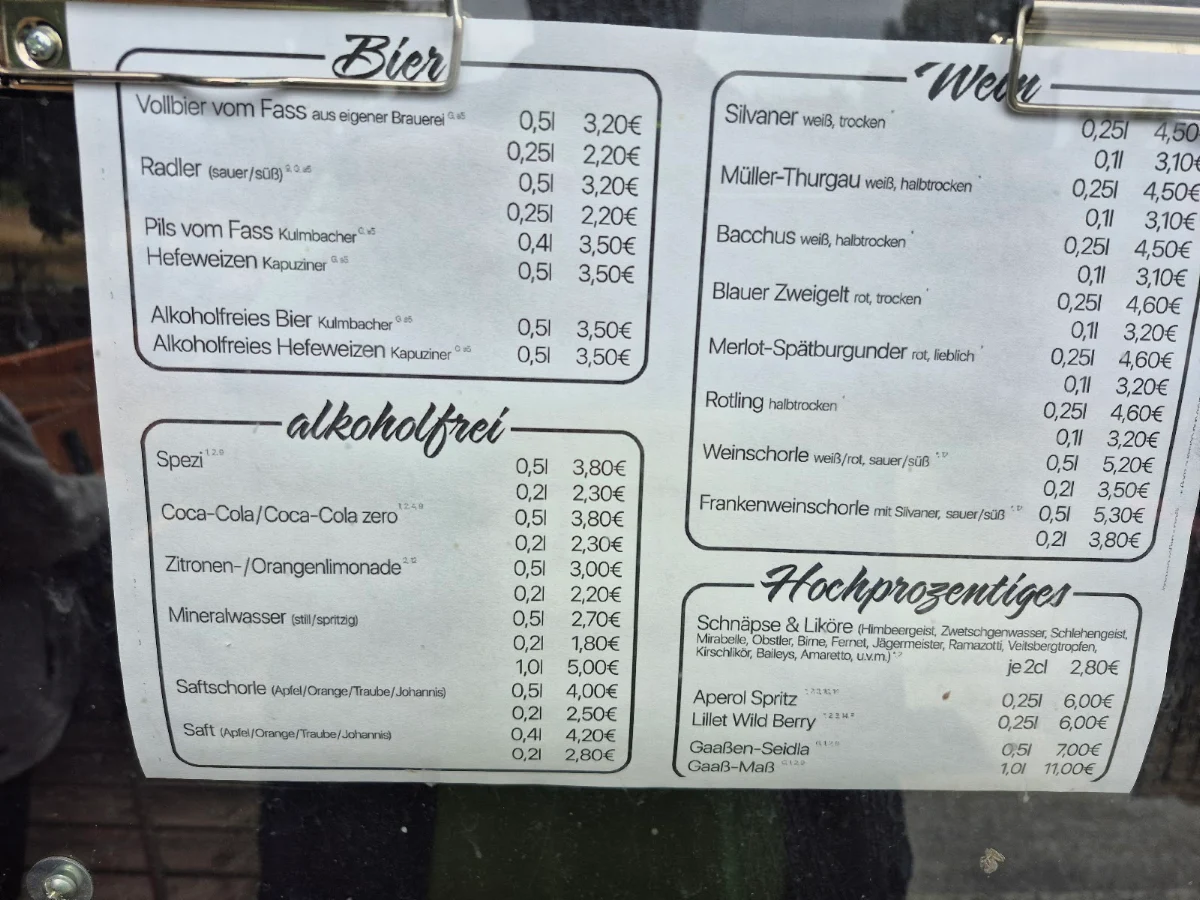 Bier
Vollbier vom Fass aus eigener Brauerei 0,5l 3,20€
0,25l 2,20€
Radler (sauer/süß) 0,5l 3,20€
0,25l 2,20€
Pils vom Fass Kulmbacher 0,4l 3,50€
Hefeweizen Kapuziner 0,5l 3,50€
Alkoholfreies Bier Kulmbacher 0,5l 3,50€
Alkoholfreies Hefeweizen Kapuziner 0,5l 3,50€
alkoholfrei
Spezi 0,5l 3,80€
0,2l 2,30€
Coca-Cola/Coca-Cola zero 0,5l 3,80€
0,2l 2,30€
Zitronen-/Orangenlimonade 0,5l 3,00€
0,2l 2,20€
Mineralwasser (still/spritzig) 0,5l 2,70€
0,2l 1,80€
1,0l 5,00€
Saftschorle (Apfel/Orange/Traube/Johannis) 0,5l 4,00€
0,2l 2,50€
Saft (Apfel/Orange/Traube/Johannis) 0,4l 4,20€
0,2l 2,80€
Wein
Silvaner weiß, trocken 0,25l 4,50
0,1l 3,10€
Müller-Thurgau weiß, halbtrocken 0,25l 4,50€
0,1l 3,10€
Bacchus weiß, halbtrocken 0,25l 4,50€
0,1l 3,10€
Blauer Zweigelt rot, trocken 0,25l 4,60€
0,1l 3,20€
Merlot-Spätburgunder rot, lieblich 0,25l 4,60€
0,1l 3,20€
Rotling halbtrocken 0,25l 4,60€
0,1l 3,20€
Weinschorle weiß/rot, sauer/süß 0,5l 5,20€
0,2l 3,50€
Frankenweinschorle mit Silvaner, sauer/süß 0,5l 5,30€
0,2l 3,80€
Hochprozentiges
Schnäpse & Liköre (Himbeergeist, Zwetschgenwasser, Schlehengeist,
Mirabelle, Obstler, Birne, Fernet, Jägermeister, Ramazotti, Veitsbergtropfen,
Kirschlikör, Baileys, Amaretto, u.v.m.)
je 2cl 2,80€
Aperol Spritz 0,25l 6,00€
Lillet Wild Berry 0,25l 6,00€
Gaaßen-Seidla 0,5l 7,00€
Gaaß-Maß 1,0l 11,00€